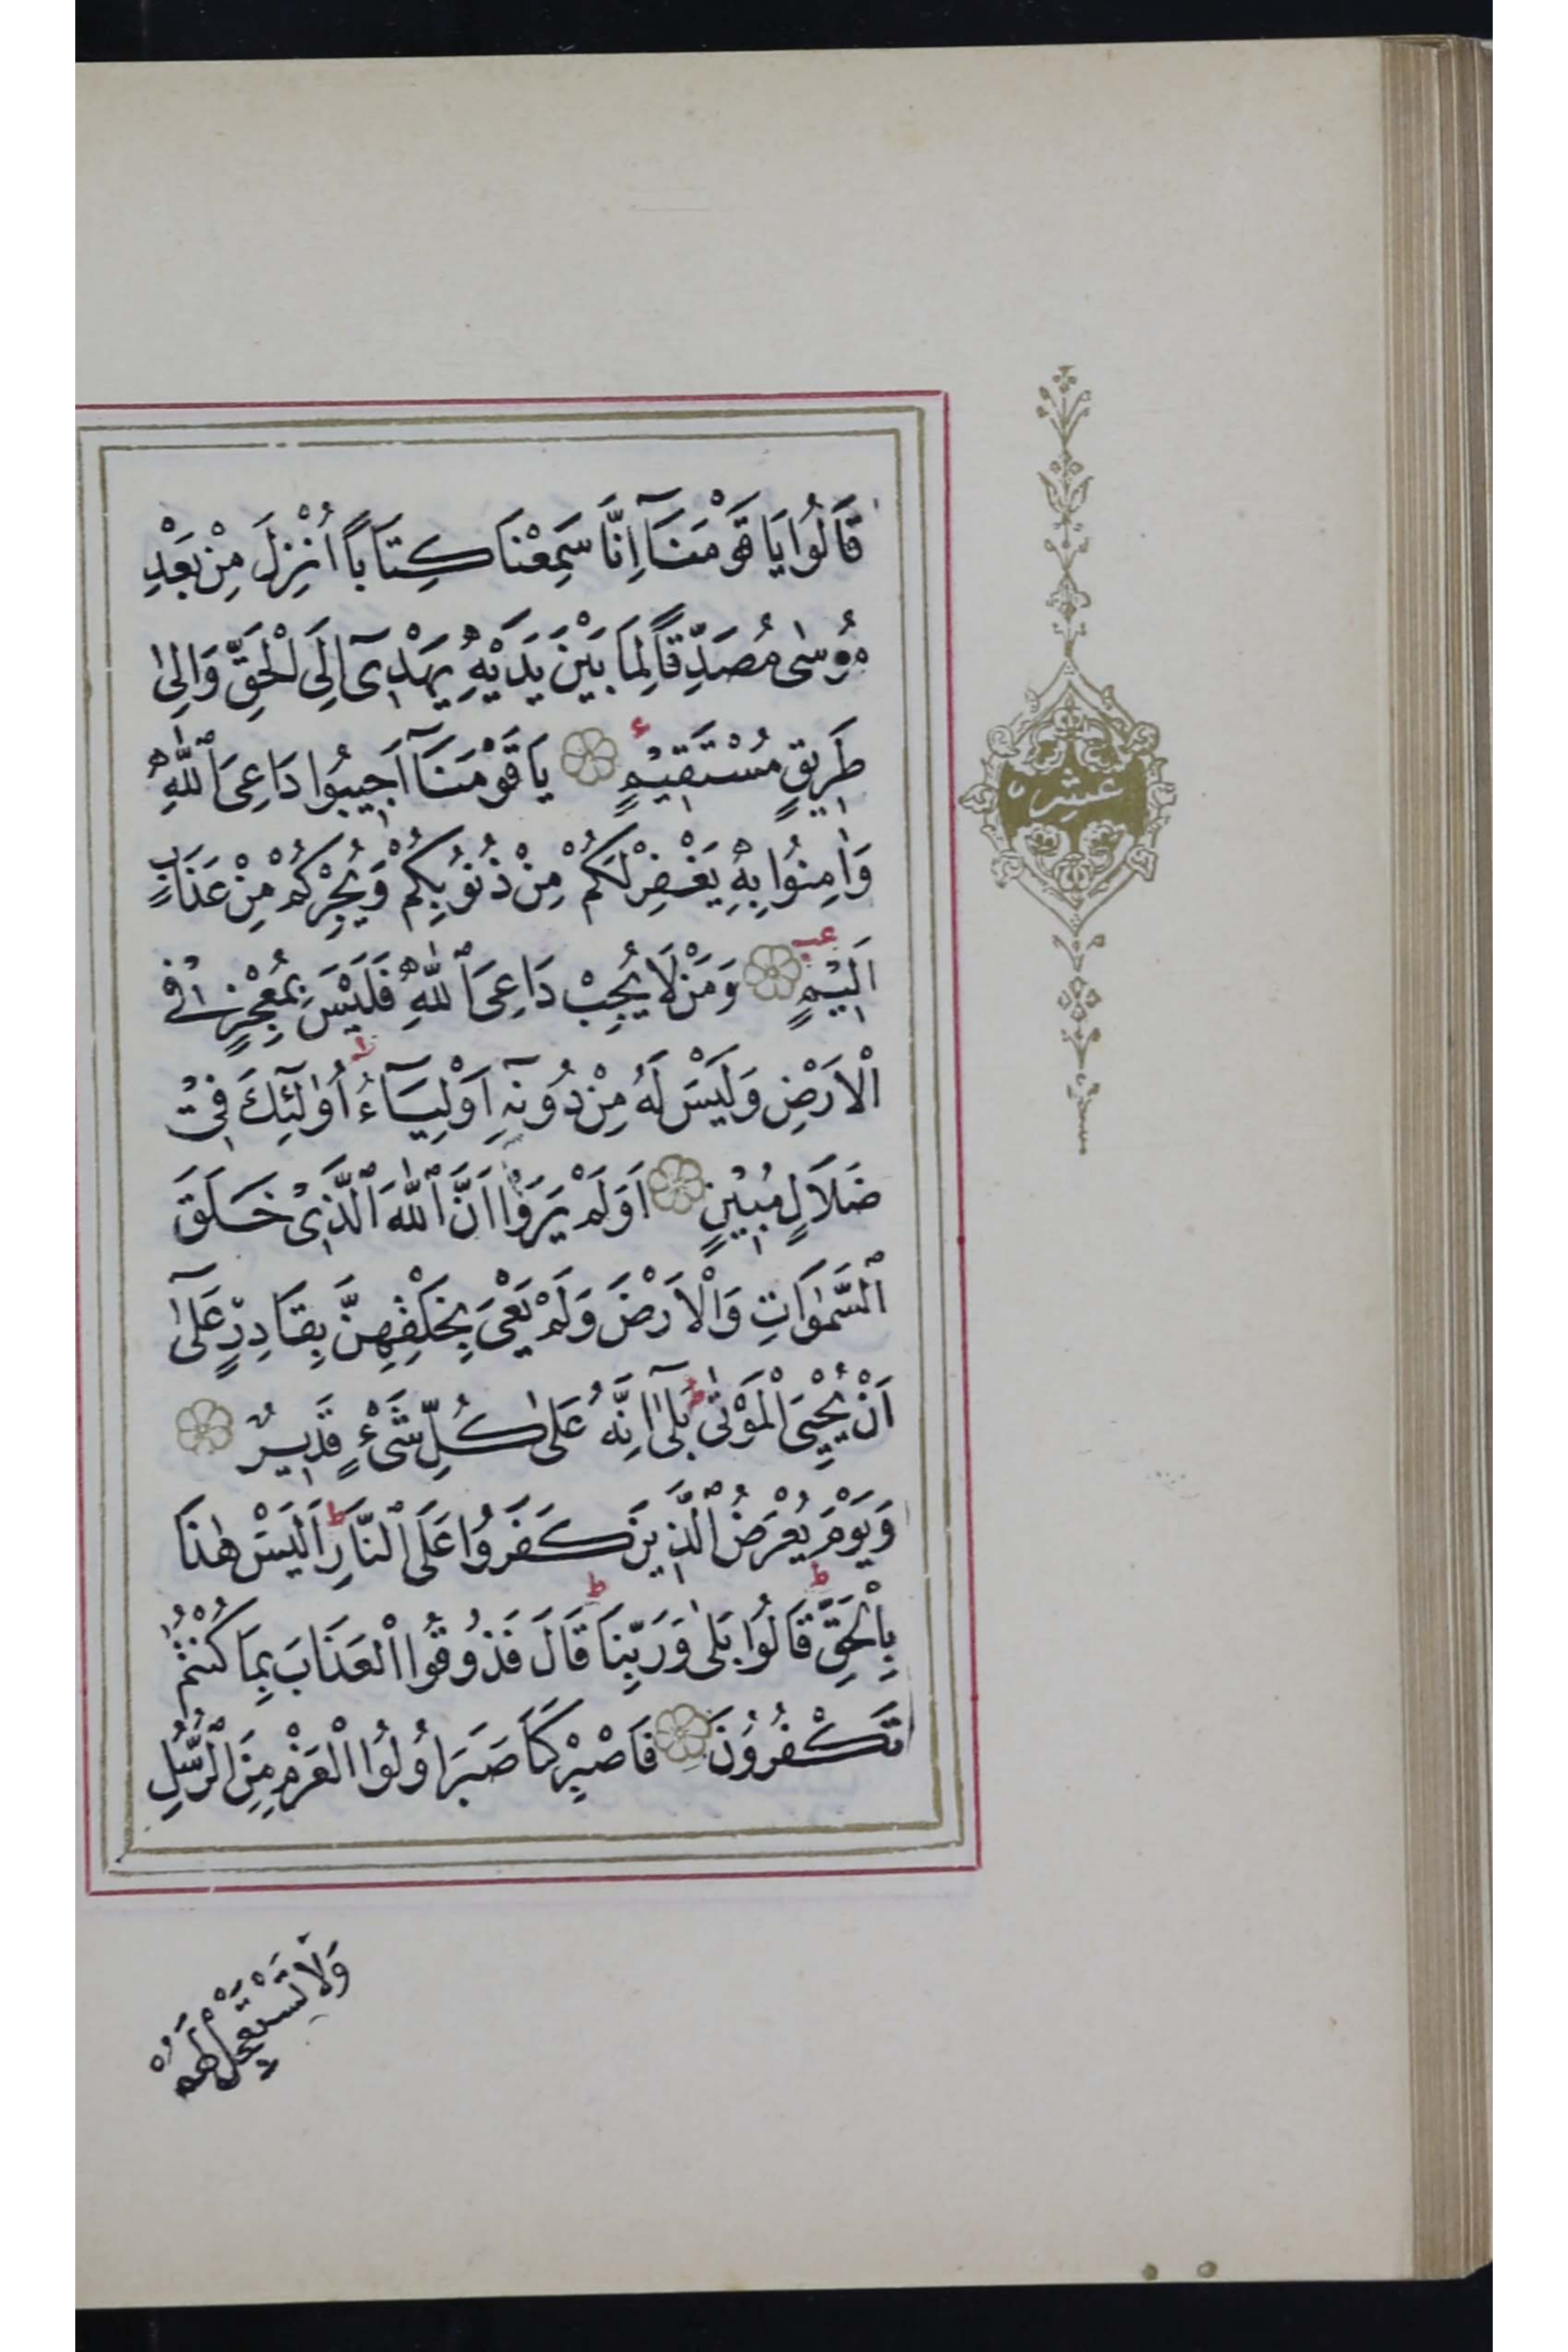 قَالُوا يَا قَوْمَنَآ اِنَّا سَمِعْنَا كِتَاباً اُنْزِلَ مِنْ بَعْدِ
مُوسٰى مُصَدِّقاً لِمَا بَيْنَ يَدَيْهِ يَهْدِىٓ اِلَى الْحَقِّ وَاِلىٰ
طَرِيقٍ مُسْتَقِيمٍ يَا قَوْمَنَآ اَجِيبُوا دَاعِىَ ٱللّٰهِ
وَاٰمِنُوا بِهِ يَغْفِرْ لَكُمْ مِنْ ذُنُوبِكُمْ وَيُجِرْكُمْ مِنْ عَذَابٍ
اَلِيمٍ وَمَنْ لَا يُجِبْ دَاعِىَ ٱللّٰهِ فَلَيْسَ بِمُعْجِزٍ فِى
الْاَرْضِ وَلَيْسَ لَهُ مِنْ دُونِهِٓ اَوْلِيَآءُ اُو۬لٰٓئِكَ فِى
ضَلَالٍ مُبِينٍ اَوَلَمْ يَرَوْا اَنَّ ٱللّٰهَ ٱلَّذِى خَلَقَ
ٱلسَّمٰوَاتِ وَالْاَرْضَ وَلَمْ يَعْىَ بِخَلْقِهِنَّ بِقَادِرٍ عَلىٰٓ
اَنْ يُحْيِىَ الْمَوْتٰى بَلىٰٓ اِنَّهُ عَلىٰ كُلِّ شَىْءٍ قَدِيرٌ
وَيَوْمَ يُعْرَضُ ٱلَّذِينَ كَفَرُوا عَلَى ٱلنَّارِ اَلَيْسَ هٰذَا
بِالْحَقِّ قَالُوا بَلىٰ وَرَبِّنَا قَالَ فَذُوقُوا الْعَذَابَ بِمَا كُنْتُمْ
تَكْفُرُونَ فَاصْبِرْ كَمَا صَبَرَ اُولُوا الْعَزْمِ مِنَ ٱلرُّسُلِ
وَلَا تَسْتَعْجِلْ لَهُمْ
عشره